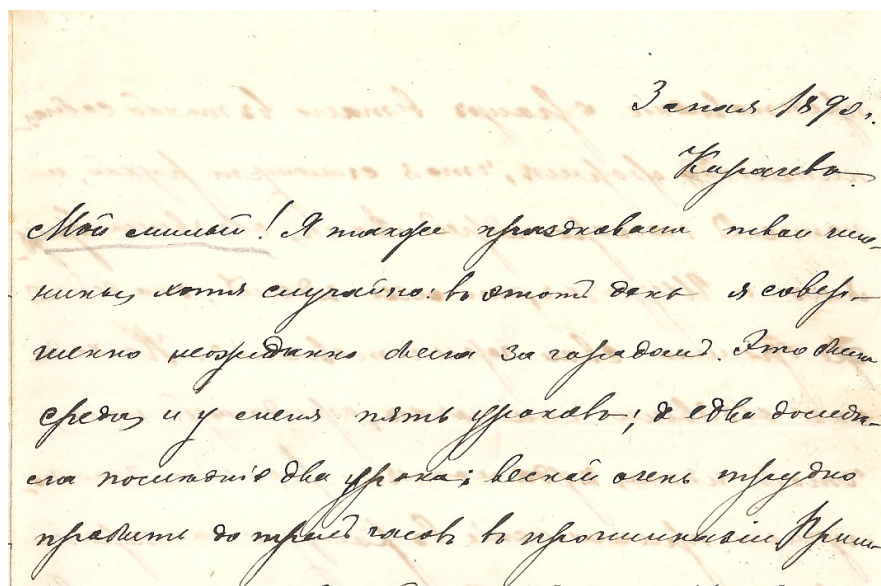 3 мая 1890 г.
Карачевъ.
Мой милый! Я также праздновала твои име-
нины, хотя случайно: въ этотъ день я совер-
шенно неожиданно была за городомъ. Это была
среда, и у меня пять уроковъ; я едва досиде-
ла последнiе два урока; весной очень трудно
пробыть до трехъ часовъ въ прогимназiи.